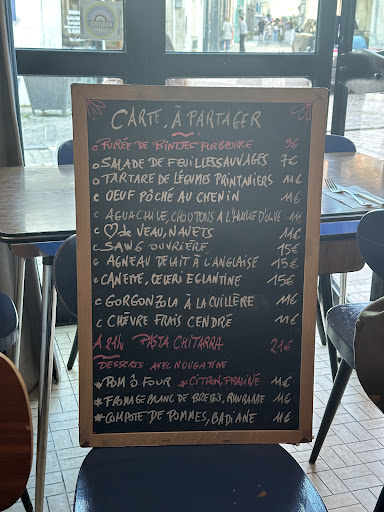 CARTE, À PARTAGER
C PURÉE DE BINTJES FURIBARDE 9€
O SALADE DE FEUILLES SAUVAGES 7€
O TARTARE DE LÉGUMES PRINTANIERS 11€
C OEUF PÔCHÉ AU CHENIN 11€
C AGUACHILE, CROUTONS A L'HUILE D'OLIVE 11€
C ♡ de VEAU, NAVETS 11€
C SANG OUVRIÈRE 15€
C AGNEAU DE LAIT À L'ANGLAISE 15€
C CANETTE, CELERI EGLANTINE 15€
C GORGONZOLA À LA CUILLÈRE 11€
C CHÈVRE FRAIS CENDRÉ 11€
A 21H PASTA CHITARRA 21€
DESSERTS AXEL NOUGATINE
# POM Ô FOUR # CITRON, PRALINÉ 11€
# FROMAGE BLANC DE BREBIS, RHUBARBE 11€
# COMPOTE DE POMMES, BADIANE 11€